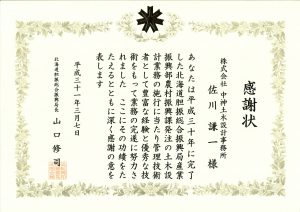 感謝状
株式会社中神土木設計事務所
佐川謙一様
あなたは平成三十年に完了
した北海道胆振総合振興局産業
振興部農村振興課発注の土木設
計業務の施行に当たり管理技術
者として豊富な経験と優秀な技
術をもって業務の完遂に努力さ
れました ここにその功績をた
たえるとともに深く感謝の意を
表します
平成三十一年三月七日
北海道胆振総合振興局長
山口修司